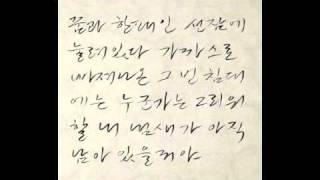 꿈과 한패인 선잠에
눌려있다 가까스로
빠져나온 그 빈 침대
에는 누군가는 그리워
할 내 냄새가 아직
남아 있을거야